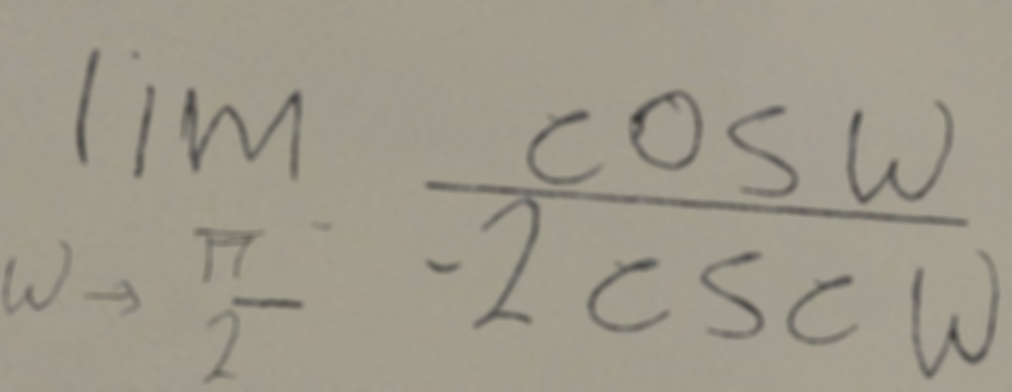 \lim_{w \to \frac{\pi}{2}^{-}} \frac{\cos w}{-2 \csc w}